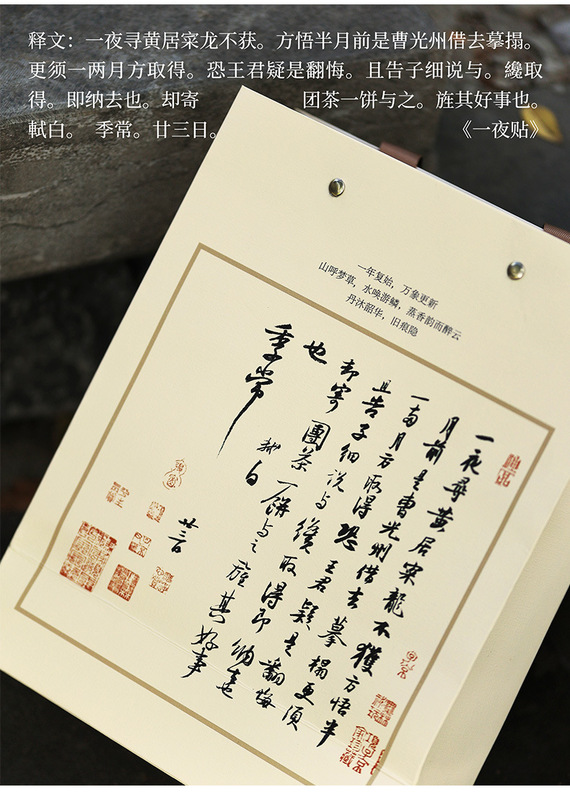 释文：一夜寻黄居寀龙不获。方悟半月前是曹光州借去摹搨。
更须一两月方取得。恐王君疑是翻悔。且告子细说与。纔取
得。即纳去也。却寄　团茶一饼与之。旌其好事也。
軾白。 季常。廿三日。 《一夜贴》
一年复始，万象更新
山呼梦草，水唤游鳞，蒸香韵而醉云
丹沐韶华，旧痕隐
一夜尋黃居寀龍不獲方悟半
月前是曹光州借去摹搨更須
一兩月方取得恐王君疑是翻悔
且告子細說與纔取得即納去也
却寄
團茶一餅與之旌其好事
也
軾白
季常
廿三日